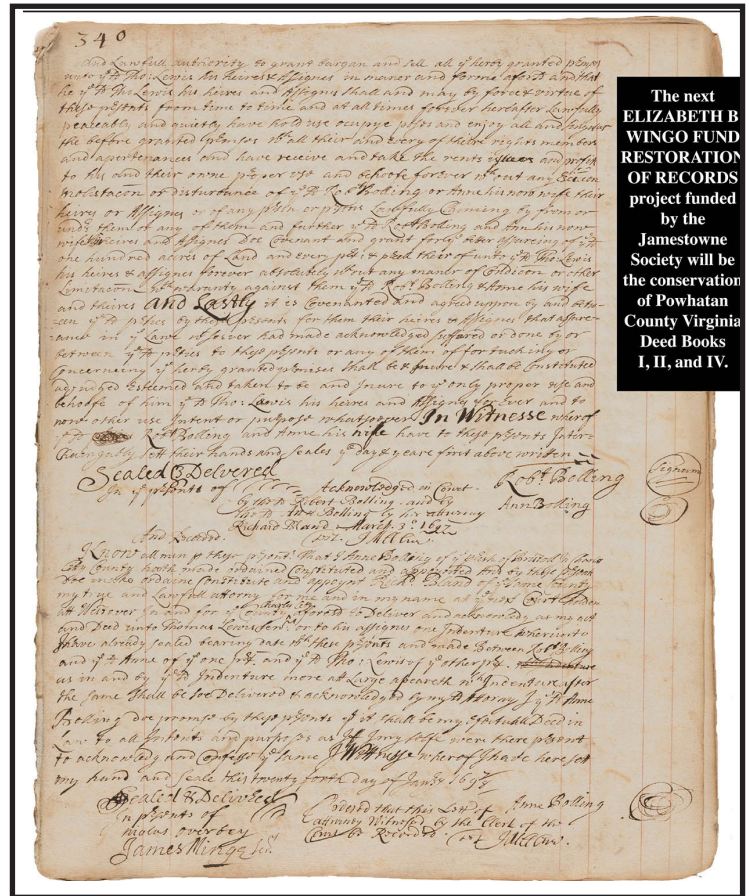 340
and Lawfull authority to grant bargan and sell all yᵉ herein granted pʳmises
unto yᵉ sᵈ Tho: Lewis his heires & Assignes in maner and forme aforesᵈ and that
he yᵉ sᵈ Tho: Lewis his heires and Assignes shall and may by force & virtue of
these pʳsents from time to time and at all times forever hereafter Lawfully
peaceably and quietly have hold use occupye posses and enjoy all and singular
the before granted pʳmises wᵗʰ all their and every of theire rights members
and apertenances and have receive and take the rents issues and profits
to his and their owne proper use and behoofe for ever wᵗʰout any
molistacon or disturbance of yᵉ sᵈ Robᵗ Bolling or Anne his now wife their
heires or Assignes or of any pʳson or pʳsons Lawfully Coming by from or
undʳ them or any of them and further yᵉ sᵈ Robᵗ Bolling and Ann his now
wife heires and Assignes Doe Covenant and grant for yᵉ better assureing of yᵉ sᵈ
one hundred acres of Land and every pᵗ & pʳcell thereof unto yᵉ sᵈ Tho: Lewis
his heires & assignes forever absolutely wᵗʰout any maner of Condicon or other
Limitacon wᵗʰ warranty against them yᵉ sᵈ Robᵗ Bolling & Anne his wife
and theires And Lastly it is Covenanted and agreed upon by and betw-
een yᵉ sᵈ pʳties by these pʳsents for them their heires & Assignes that assur-
ance in yᵉ Lawe whatsoever had made acknowledged suffered or done by or
between yᵉ sᵈ pʳties to these pʳsents or any of them of for tuching or
Concerneing yᵉ herby granted pʳmises shall be & inure & shall be Constituted
adjudged Esteemed and taken to be and Inure to yᵉ only proper use and
behoofe of him yᵉ sᵈ Tho: Lewis his heires and Assignes for ever and to
none other use Intent or purpose whatsoever In Witnesse whereof
yᵉ sᵈ Robᵗ Bolling and Anne his wife have to these pʳsents Inter-
changably sett their hands and seales yᵉ day & yeare first above written
Sealed & Delivered
In yᵉ pʳsents of
Acknowledged in Court
by the sᵈ Robert Bolling and by
the sᵈ Ann Bolling by her attorney
Richard Bland March 3ᵈ
And Recorded
Robᵗ Bolling
Ann Bolling
Signum
Know all men by these pʳsents That I Anne Bolling of yᵉ pʳish of Bristoll in Charles
City County hath made ordained Constituted and appoynted and by these pʳsents
Doe make ordaine Constitute and appoynt Richᵈ Bland of yᵉ same County
my true and Lawfull attorny for me and in my name at yᵉ next Court holden
at Westover in and for yᵉ County aforesᵈ to Deliver and acknowledg as my act
Charles City
and Deed unto Thomas Lewis senʳ or to his assignes one Indenture whereunto
I have already sealed bearing date wᵗʰ these pʳsents and made Between Robᵗ Bolling
and yᵉ sᵈ Anne of yᵉ one pᵗ and yᵉ sᵈ Tho: Lewis of yᵉ other pᵗ
as in and by yᵉ sᵈ Indenture more at Large apeareth wᶜʰ Indenture after
the same shall be soe Delivered & acknowledged by my sᵈ Attorny I yᵉ sᵈ Anne
Bolling doe promse by these pʳsents yᵗ it shall be my Deed in
Law to all Intents and purposes as if I my selfe were there pʳsent
to acknowledg and Confesse yᵉ same In Wittnesse whereof I have here set
my hand and seale this twenty forth day of Janʳʸ 169⅞
Sealed & Delivered
In pʳsents of
nicolas overbey
James Minge Senʳ
Ordered that this Lettʳ of
atturney Witnesed by the Clerk of the
Court be Recorded
Anne Bolling
The next
ELIZABETH B
WINGO FUND
RESTORATION
OF RECORDS
project funded
by the
Jamestowne
Society will be
the conservation
of Powhatan
County Virginia
Deed Books
I, II, and IV.